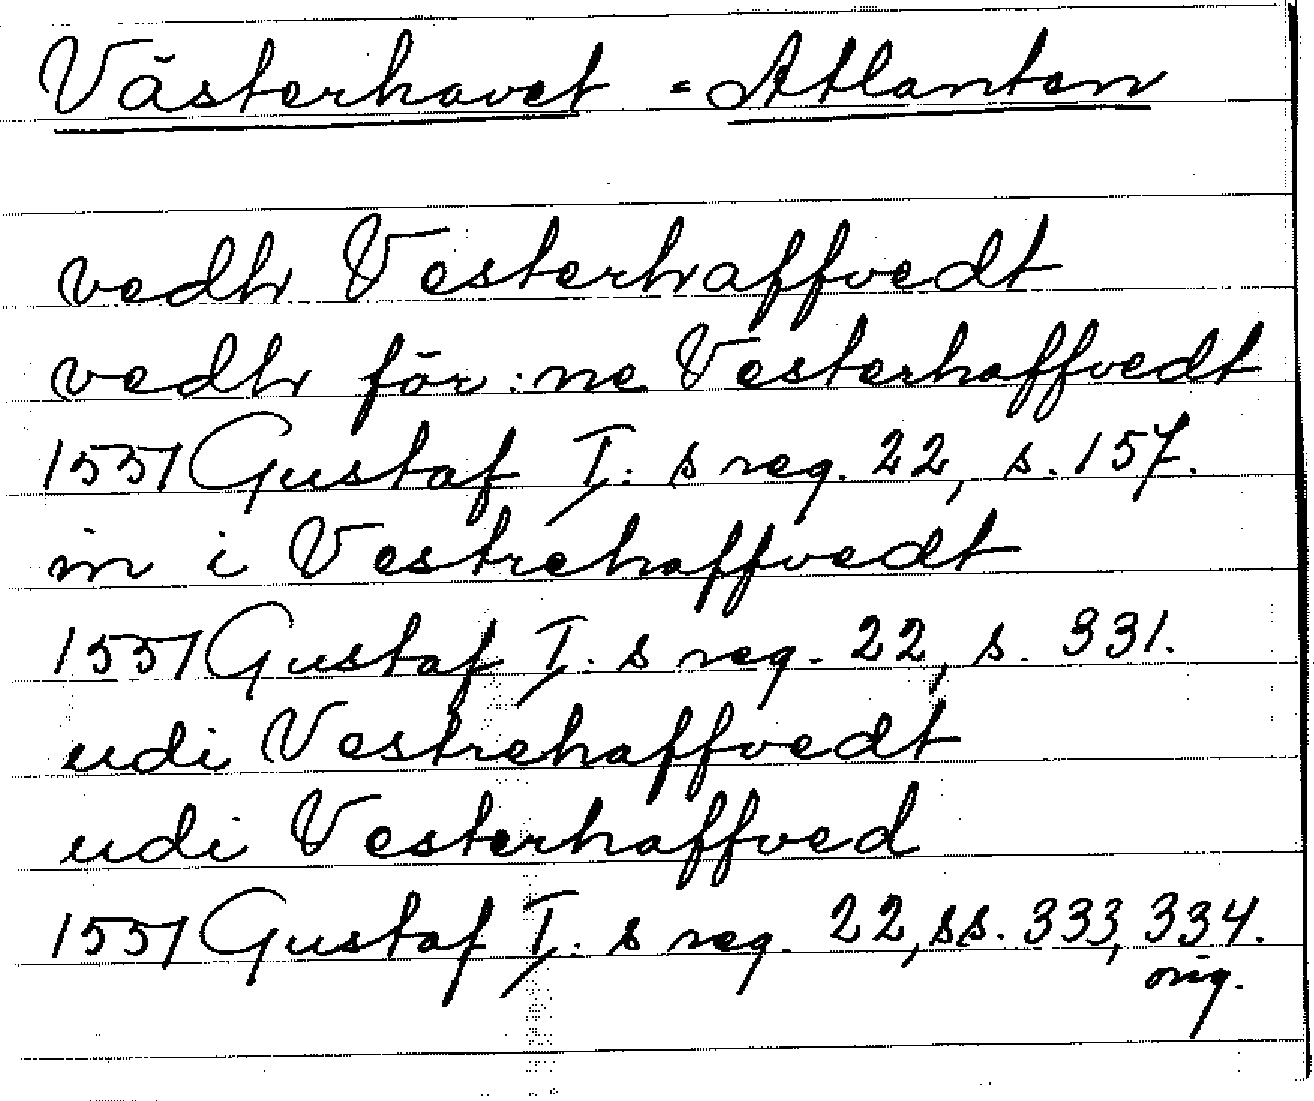 Västerhavet = Atlanten
vedh Vesterhaffvedt
vedh för:ne Vesterhaffvedt
1551 Gustaf I:s reg. 22, s. 157.
in i Vestrehaffvedt
1551 Gustaf I:s reg. 22, s. 331.
udi Vestrehaffvedt
udi Vesterhaffved
1551 Gustaf I:s reg. 22, ss. 333, 334.
orig.